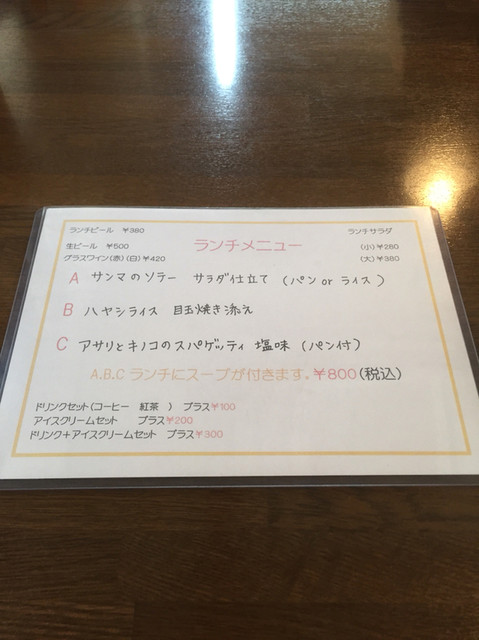 ランチビール ￥380 ランチサラダ
生ビール ￥500 ランチメニュー (小)￥280
グラスワイン(赤)(白)￥420 (大)￥380
A サンマのソテー サラダ仕立て (パン or ライス)
B ハヤシライス 目玉焼き添え
C アサリとキノコのスパゲッティ 塩味 (パン付)
A.B.C ランチにスープが付きます。￥800(税込)
ドリンクセット(コーヒー 紅茶 ) プラス￥100
アイスクリームセット プラス￥200
ドリンク+アイスクリームセット プラス￥300